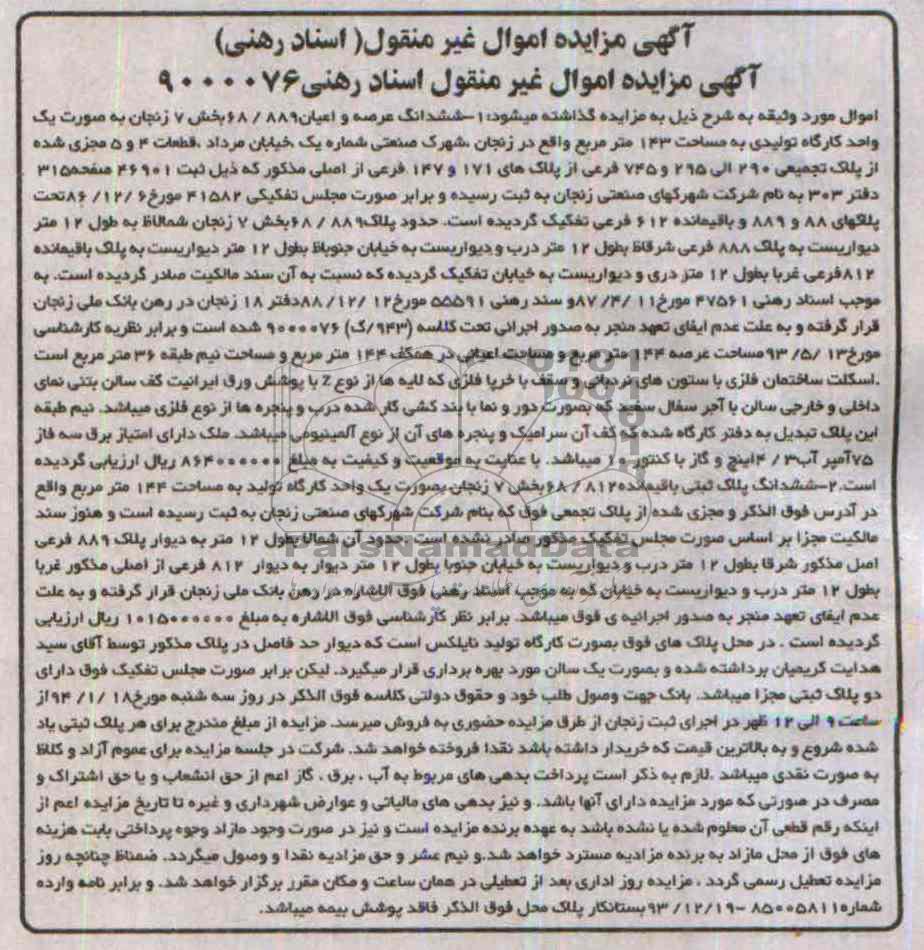 آگهی مزایده اموال غیر منقول( اسناد رهنی)
آگهی مزایده اموال غیر منقول اسناد رهنی۹۰۰۰۰۷۶
اموال مورد وثیقه به شرح ذیل به مزایده گذاشته میشود:۱-ششدانگ عرصه و اعیان۸۸۹ / ۶۸بخش ۷ زنجان به صورت یک
واحد کارگاه تولیدی به مساحت ۱۴۳ متر مربع واقع در زنجان ،شهرک صنعتی شماره یک ،خیابان مرداد ،قطعات ۴ و ۵ مجزی شده
از پلاک تجمیعی ۲۹۰ الی ۲۹۵ و ۷۴۵ فرعی از پلاک های ۱۷۱ و ۱۴۷ فرعی از اصلی مذکور که ذیل ثبت ۴۶۹۰۱ صفحه۳۱۵
دفتر ۳۰۳ به نام شرکت شهرکهای صنعتی زنجان به ثبت رسیده و برابر صورت مجلس تفکیکی ۴۱۵۸۲ مورخ۶ /۱۲/ ۸۶تحت
پلاکهای ۸۸ و ۸۸۹ و باقیمانده ۶۱۲ فرعی تفکیک گردیده است. حدود پلاک۸۸۹ / ۶۸بخش ۷ زنجان شمالاظ به طول ۱۲ متر
دیواریست به پلاک ۸۸۸ فرعی شرقاظ بطول ۱۲ متر درب و دیواریست به خیابان جنوباظ بطول ۱۲ متر دیواریست به پلاک باقیمانده
۸۱۲فرعی غربا بطول ۱۲ متر دری و دیواریست به خیابان تفکیک گردیده که نسبت به آن سند مالکیت صادر گردیده است. به
موجب اسناد رهنی ۴۷۵۶۱ مورخ۱۱ /۴/ ۸۷و سند رهنی ۵۵۵۹۱ مورخ۱۲ /۱۲/ ۸۸دفتر ۱۸ زنجان در رهن بانک ملی زنجان
قرار گرفته و به علت عدم ایفای تعهد منجر به صدور اجرائی تحت کلاسه (۹۴۳/ک) ۹۰۰۰۰۷۶ شده است و برابر نظریه کارشناسی
مورخ۱۳ /۵/ ۹۳مساحت عرصه ۱۴۴ متر مربع و مساحت اعیانی در همکف ۱۴۴ متر مربع و مساحت نیم طبقه ۳۶ متر مربع است
.اسکلت ساختمان فلزی با ستون های نردبانی و سقف با خرپا فلزی که لایه ها از نوع Z با پوشش ورق ایرانیت کف سالن بتنی نمای
داخلی و خارجی سالن با آجر سفال سفید که بصورت دور و نما با بند کشی کار شده درب و پنجره ها از نوع فلزی میباشد. نیم طبقه
این پلاک تبدیل به دفتر کارگاه شده که کف آن سرامیک و پنجره های آن از نوع آلمینیومی میباشد. ملک دارای امتیاز برق سه فاز
۷۵آمپر آب۳ / ۴اینچ و گاز با کنتور ۱۰ میباشد. با عنایت به موقعیت و کیفیت به مبلغ ۸۶۴۰۰۰۰۰۰ ریال ارزیابی گردیده
است.۲-ششدانگ پلاک ثبتی باقیمانده۸۱۲ / ۶۸بخش ۷ زنجان بصورت یک واحد کارگاه تولید به مساحت ۱۴۴ متر مربع واقع
در آدرس فوق الذکر و مجزی شده از پلاک تجمعی فوق که بنام شرکت شهرکهای صنعتی زنجان به ثبت رسیده است و هنوز سند
مالکیت مجزا بر اساس صورت مجلس تفکیک مذکور صادر نشده است .حدود آن شمالا بطول ۱۲ متر به دیوار پلاک ۸۸۹ فرعی
اصل مذکور شرقا بطول ۱۲ متر درب و دیواریست به خیابان جنوبا بطول ۱۲ متر دیوار به دیوار ۸۱۲ فرعی از اصلی مذکور غربا
بطول ۱۲ متر درب و دیواریست به خیابان که به موجب اسناد رهنی فوق الاشاره در رهن بانک ملی زنجان قرار گرفته و به علت
عدم ایفای تعهد منجر به صدور اجرائیه ی فوق میباشد. برابر نظر کارشناسی فوق الاشاره به مبلغ ۱۰۱۵۰۰۰۰۰۰ ریال ارزیابی
گردیده است . در محل پلاک های فوق بصورت کارگاه تولید نایلکس است که دیوار حد فاصل در پلاک مذکور توسط آقای سید
هدایت کریمیان برداشته شده و بصورت یک سالن مورد بهره برداری قرار میگیرد. لیکن برابر صورت مجلس تفکیک فوق دارای
دو پلاک ثبتی مجزا میباشد. بانک جهت وصول طلب خود و حقوق دولتی کلاسه فوق الذکر در روز سه شنبه مورخ۱۸ /۱/ ۹۴از
ساعت ۹ الی ۱۲ ظهر در اجرای ثبت زنجان از طرق مزایده حضوری به فروش میرسد. مزایده از مبلغ مندرج برای هر پلاک ثبتی یاد
شده شروع و به بالاترین قیمت که خریدار داشته باشد نقدا فروخته خواهد شد. شرکت در جلسه مزایده برای عموم آزاد و کلاظ
به صورت نقدی میباشد .لازم به ذکر است پرداخت بدهی های مربوط به آب ، برق ، گاز اعم از حق انشعاب و یا حق اشتراک و
مصرف در صورتی که مورد مزایده دارای آنها باشد. و نیز بدهی های مالیاتی و عوارض شهرداری و غیره تا تاریخ مزایده اعم از
اینکه رقم قطعی آن معلوم شده یا نشده باشد به عهده برنده مزایده است و نیز در صورت وجود مازاد وجوه پرداختی بابت هزینه
های فوق از محل مازاد به برنده مزادیه مسترد خواهد شد.و نیم عشر و حق مزادیه نقدا و وصول میگردد. ضمناظ چنانچه روز
مزایده تعطیل رسمی گردد ، مزایده روز اداری بعد از تعطیلی در همان ساعت و مکان مقرر برگزار خواهد شد. و برابر نامه وارده
شماره۸۵۰۰۵۸۱۱ -۹۳/۱۲/۱۹بستانکار پلاک محل فوق الذکر فاقد پوشش بیمه میباشد.
ParsNamadData